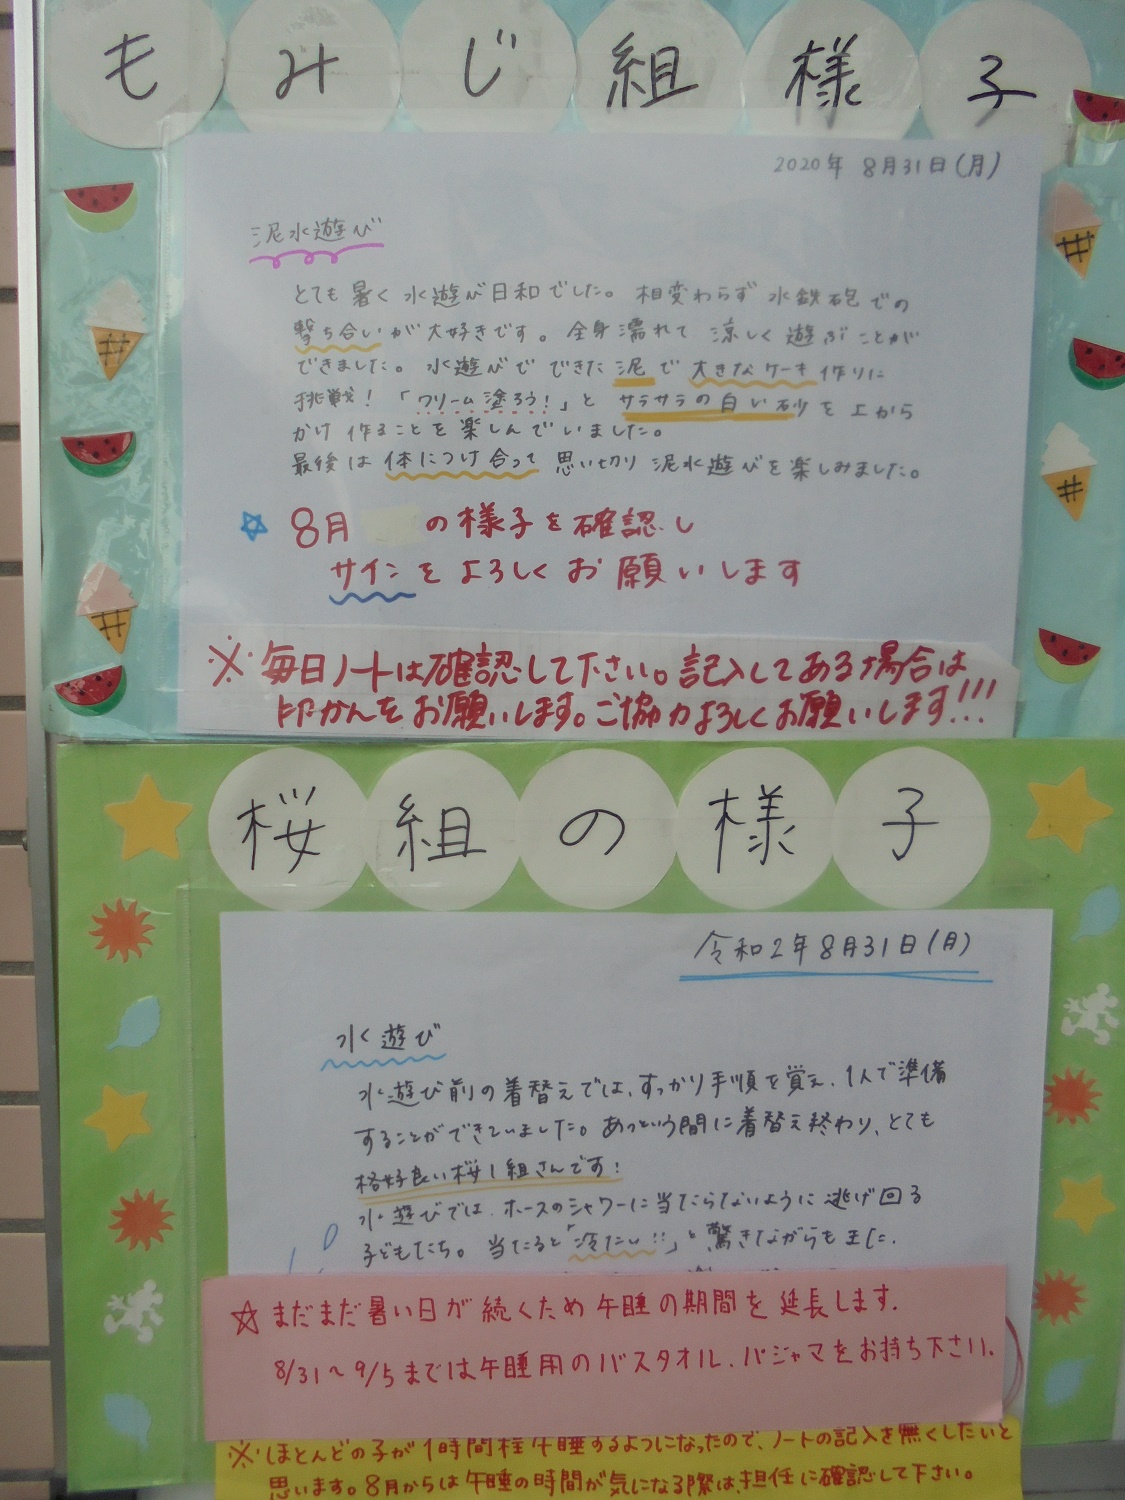 もみじ組様子
2020年 8月31日(月)
泥水遊び
とても暑く水遊び日和でした。相変わらず水鉄砲での
撃ち合いが大好きです。全身濡れて涼しく遊ぶことが
できました。水遊びでできた泥で大きなケーキ作りに
挑戦!「クリーム塗ろう!」とサラサラの白い砂を上から
かけ作ることを楽しんでいました。
最後は体につけ合って思い切り泥水遊びを楽しみました。
☆ 8月 の様子を確認し
サインをよろしくお願いします
※毎日ノートは確認して下さい。記入してある場合は
印かんをお願いします。ご協力よろしくお願いします!!!
桜組の様子
令和2年8月31日(月)
水く遊び
水遊び前の着替えでは、すっかり手順を覚え、1人で準備
することができていました。あっという間に着替え終わり、とても
格好良い桜1組さんです!
水遊びでは、ホースのシャワーに当たらないように逃げ回る
子どもたち。当たると「冷たい!!」と驚きながらもまた、
☆まだまだ暑い日が続くため午睡の期間を延長します。
8/31〜9/5までは午睡用のバスタオル、パジャマをお持ち下さい。
※ほとんどの子が1時間程午睡するようになったので、ノートの記入を無くしたいと
思います。8月からは午睡の時間が気になる際は、担任に確認して下さい。